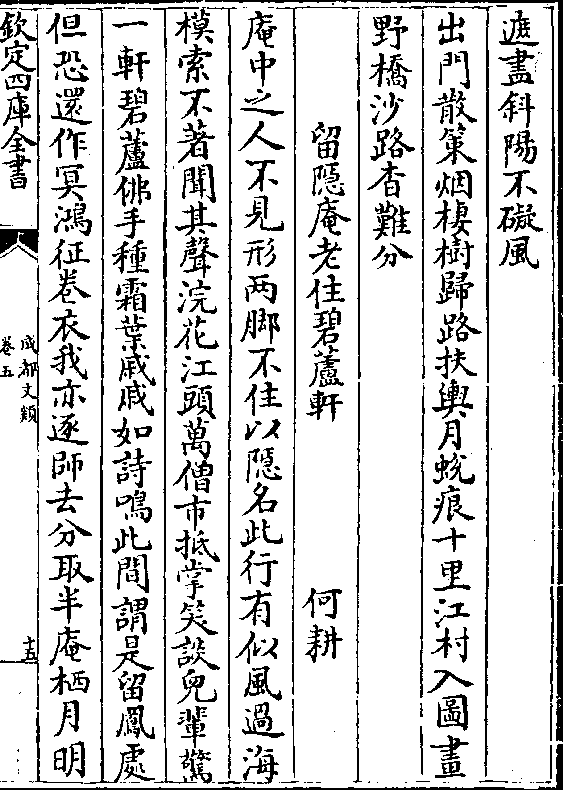 遮盡斜陽不礙風
出門散策烟棲樹歸路扶輿月蛻痕十里江村入圖畫
野橋沙路杳難分
留隠庵老住碧蘆軒 何耕
庵中之人不見形两脚不住以隠名此行有似風過海
模索不著聞其聲浣花江頭萬僧市抵掌笑談兒輩驚
一軒碧蘆佛手種霜葉戚戚如詩鳴此間謂是留鳳處
但恐還作冥鴻征卷衣我亦逐師去分取半庵栖月明
欽定四庫全書
成都文類
卷五
十五